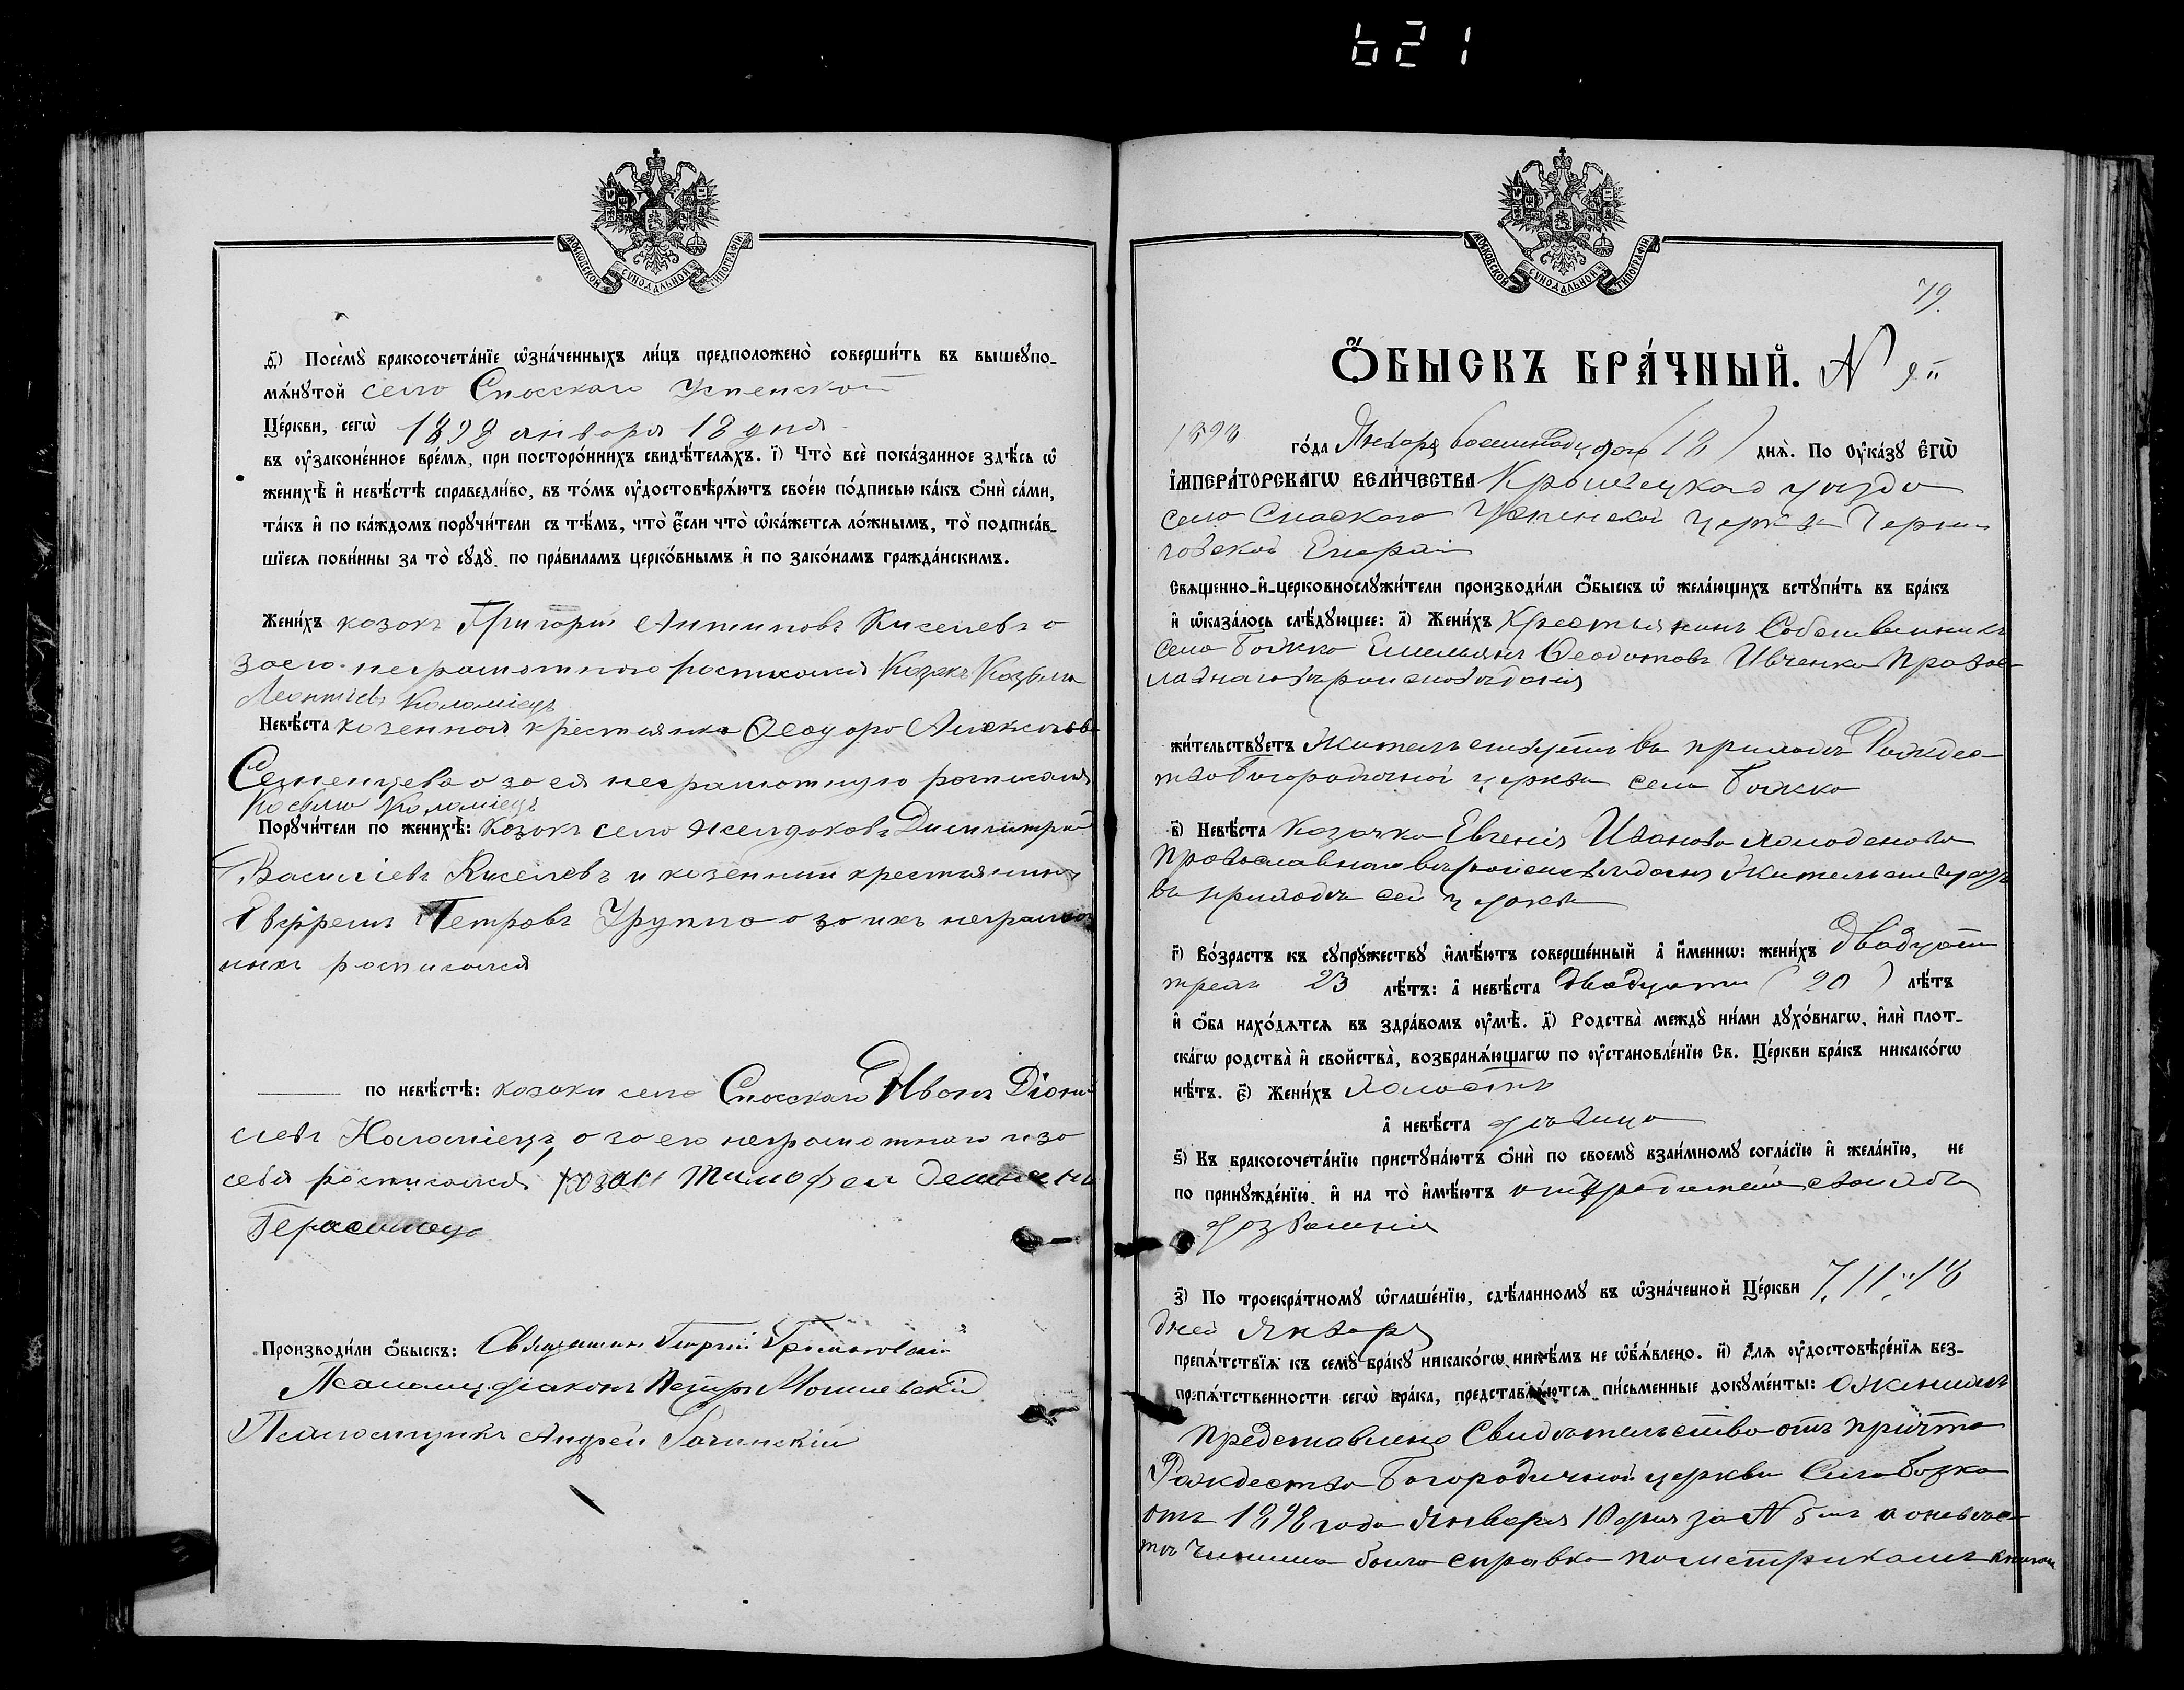 621
МОСКОВСКОЙ СѴНОДАЛЬНОЙ ТИПОГРАФІИ
ѳ҃) Посемꙋ̀ бракосочета́нїе ѡ҆зна́ченныхъ ли́цъ предположено̀ соверши́ть въ вышеꙋпо-
мѧ́нꙋтой село Спасскаго Успенской
Це́ркви, сегѡ̀ 1898 января 18 дня
въ ᲂу҆законе́нное вре́мѧ, при посторо́ннихъ свидѣ́телѧхъ. і҃) Что̀ всѐ пока́занное здѣ́сь ѡ҆
женихѣ̀ и҆ невѣ́стѣ справедли́во, въ то́мъ ᲂу҆достовѣрѧ́ютъ свое́ю по́дписью ка́къ ѻ҆нѝ са́ми,
та́къ и҆ по ка́ждомъ порꙋчи́тели съ тѣ́мъ, что̀ є҆́сли что̀ ѡ҆ка́жетсѧ ло́жнымъ, то̀ подписа́в-
шїесѧ пови́нны за то̀ сꙋдꙋ̀ по пра́виламъ церко́внымъ и҆ по зако́намъ гражда́нскимъ.
Жени́хъ козакъ Григорій Антиповъ Киселевъ а
за его неграмотного росписался Козакъ Козьма
Леонтіевъ Коломіецъ
Невѣ́ста козенная крестьянка Ѳеодора Алексіева
Семенцева а за ея неграмотную росписался
Косьма Коломіецъ
Порꙋчи́тели по женихѣ̀: Козакъ село Жолдоковъ Димитрій
Василіевъ Киселевъ и козенный крестьянинъ
Евфремъ Петровъ Группа а за ихъ неграмот
ныхъ росписался
по невѣ́стѣ: козаки село Спасскаго Иванъ Діони
сіевъ Коломіецъ, а за его неграмотнаго и за
себя росписался козакъ Тимофей
Герасимец
Производи́ли ѻ҆́быскъ: Священникъ Георгій
Псаломщ. діаконъ Петръ
Псаломщикъ Андрей
МОСКОВСКОЙ СѴНОДАЛЬНОЙ ТИПОГРАФІИ
79.
Ѻ҆́БЫСКЪ БРА́ЧНЫЙ. N 9й
1898 го́да Января восемнадцатого (18) днѧ̀. По ᲂу҆ка́зꙋ є҆гѡ̀
і҆мпера́торскагѡ вели́чества Кролевецкаго уезда
село Спаского Успенской церкви Черни
говской Епархіи
Свѧщенно-и҆-церковнослꙋжи́тели производи́ли ѻ҆́быскъ ѡ҆ жела́ющихъ встꙋпи́ть въ бра́къ
и҆ ѡ҆каза́лось слѣ́дꙋющее: а҃) Жени́хъ Крестьянинъ Собственникъ
село Божка Емельянъ Ѳеодотовъ Ивченко Право
славнаго вѣроисповѣданія
жи́тельствꙋетъ Жительствуетъ въ приходѣ Рождес
тво Богородичной церкви села Божка
в҃) Невѣ́ста Козачка Евгенія Иванова
Православнаго вѣроисповѣданія Жительствуетъ
въ приходѣ сей церкви
г҃) Во́зрастъ къ сꙋпрꙋ́жествꙋ и҆мѣ́ютъ соверше́нный а҆ и҆́меннѡ: жени́хъ двадцати
трехъ 23 лѣ́тъ: а҆ невѣ́ста двадцати (20) лѣ́тъ
и҆ ѻ҆́ба нахо́дѧтсѧ въ здра́вомъ ᲂу҆мѣ̀. д҃) Родства̀ междꙋ̀ ни́ми дꙋхо́внагѡ, и҆лѝ плот-
ска́гѡ родства̀ и҆ сво́йства, возбранѧ́ющагѡ по ᲂу҆становле́нїю Св. Це́ркви бра́къ никако́гѡ
нѣ́тъ. є҃) Жени́хъ холостъ
а҆ невѣ́ста девица
ѕ҃) Къ бракосочета́нїю пристꙋпа́ютъ ѻ҆нѝ по своемꙋ̀ взаи́мномꙋ согла́сїю и҆ жела́нїю, не
по принꙋжде́нїю и҆ на то̀ и҆мѣ́ютъ отъ родителей своихъ
дозволеніе
з҃) По троекра́тномꙋ ѡ҆глаше́нїю, сдѣ́ланномꙋ въ ѡ҆зна́ченной Це́ркви 7, 11 и 18
дней Января
препѧ́тствїѧ къ семꙋ̀ бра́кꙋ никако́гѡ никѣ́мъ не ѡ҆б̾ѧ́влено. и҃) Длѧ ᲂу҆достовѣре́нїѧ без-
препѧ́тственности сегѡ̀ бра́ка, представлѧ́ютсѧ пи́сьменные докꙋме́нты: О женихѣ
представлено Свидѣтельство отъ причта
Рождество Богородичной церкви Села Божка
отъ 1898 года января 10 дня за N 5мъ а о невѣс
тѣ Чинима была справка по метрикамъ книгам